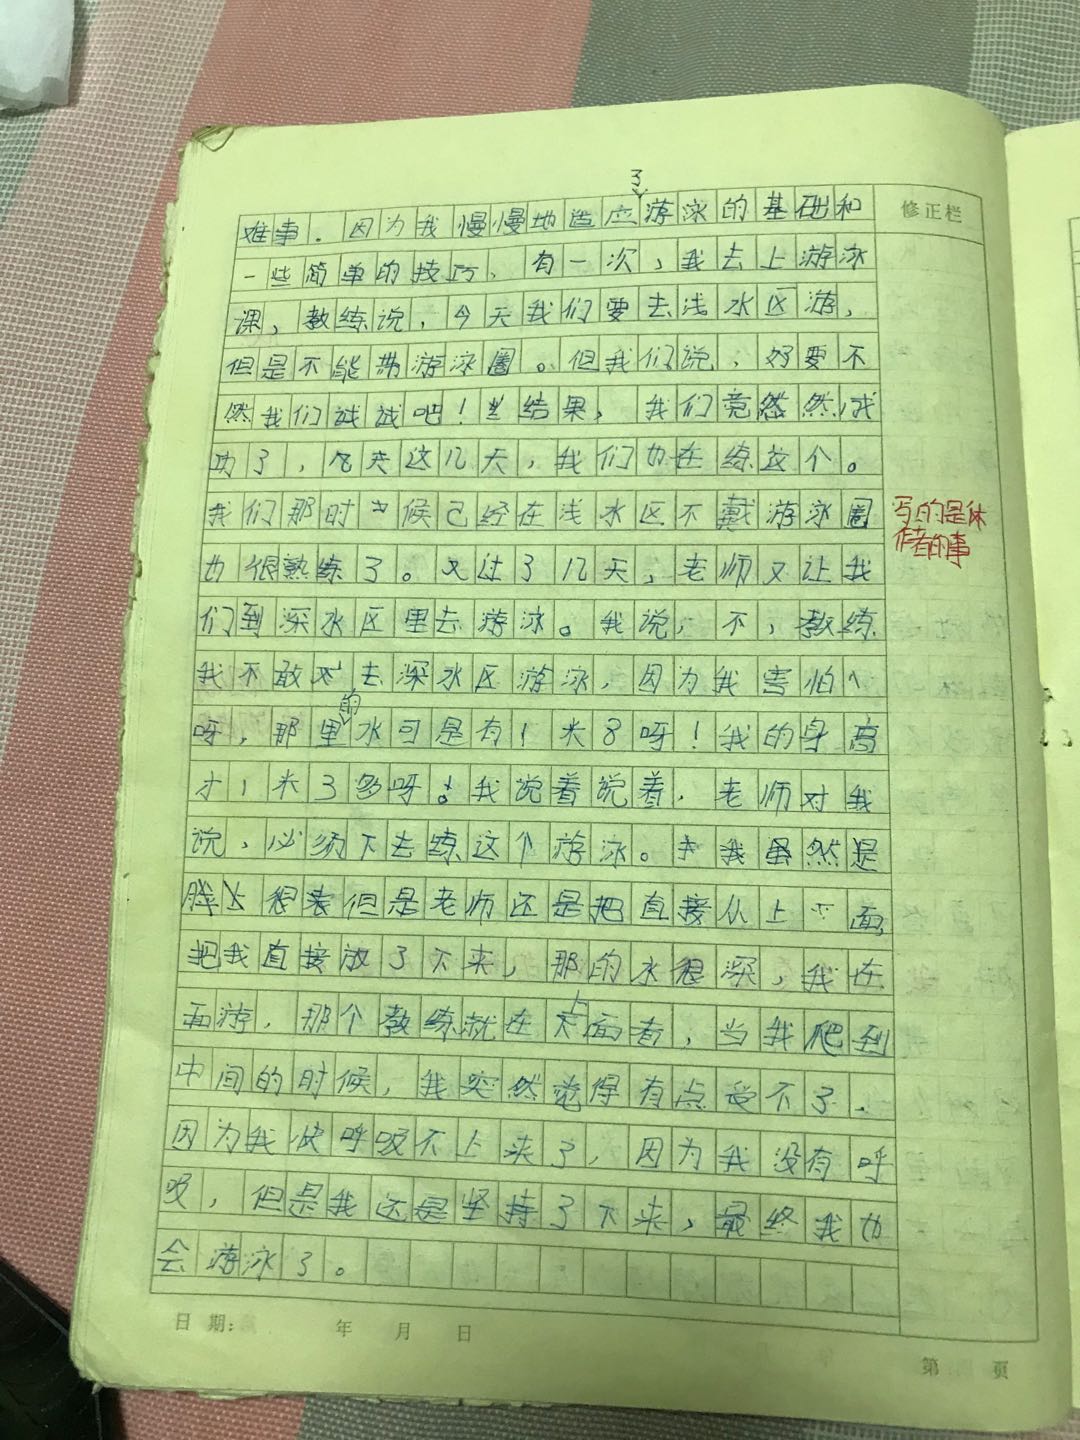 了
难事．因为我慢慢地适应游泳的基础和
修正栏
一些简单的技巧，有一次，我去上游泳
课，教练说，今天我们要去浅水区游，
但是不能带游泳圈。但我们说，好要不
然我们试试吧！结果，我们竟然然成
功了，天这几天，我们也在练这个。
我们那时候已经在浅水区不戴游泳圈
写的是休
作者的事
也很熟练了。又过了几天，老师又让我
们到深水区里去游泳。我说，不，教练
我不敢去深水区游泳，因为我害怕
的
呀，那里水可是有1米8呀！我的身高
才1米3多呀！我说着说着，老师对我
说，必须下去练这个游泳。我虽然是
很害但是老师还是把直接从上面，
把我直接放了下来，那的水很深，我在
上
面游，那个教练就在面看，当我爬到
中间的时候，我突然觉得有点受不了．
因为我快呼吸不上来了，因为我没有呼
吸，但是我还是坚持了下来，最终我也
会游泳了。
日期: 年 月 日
第 页